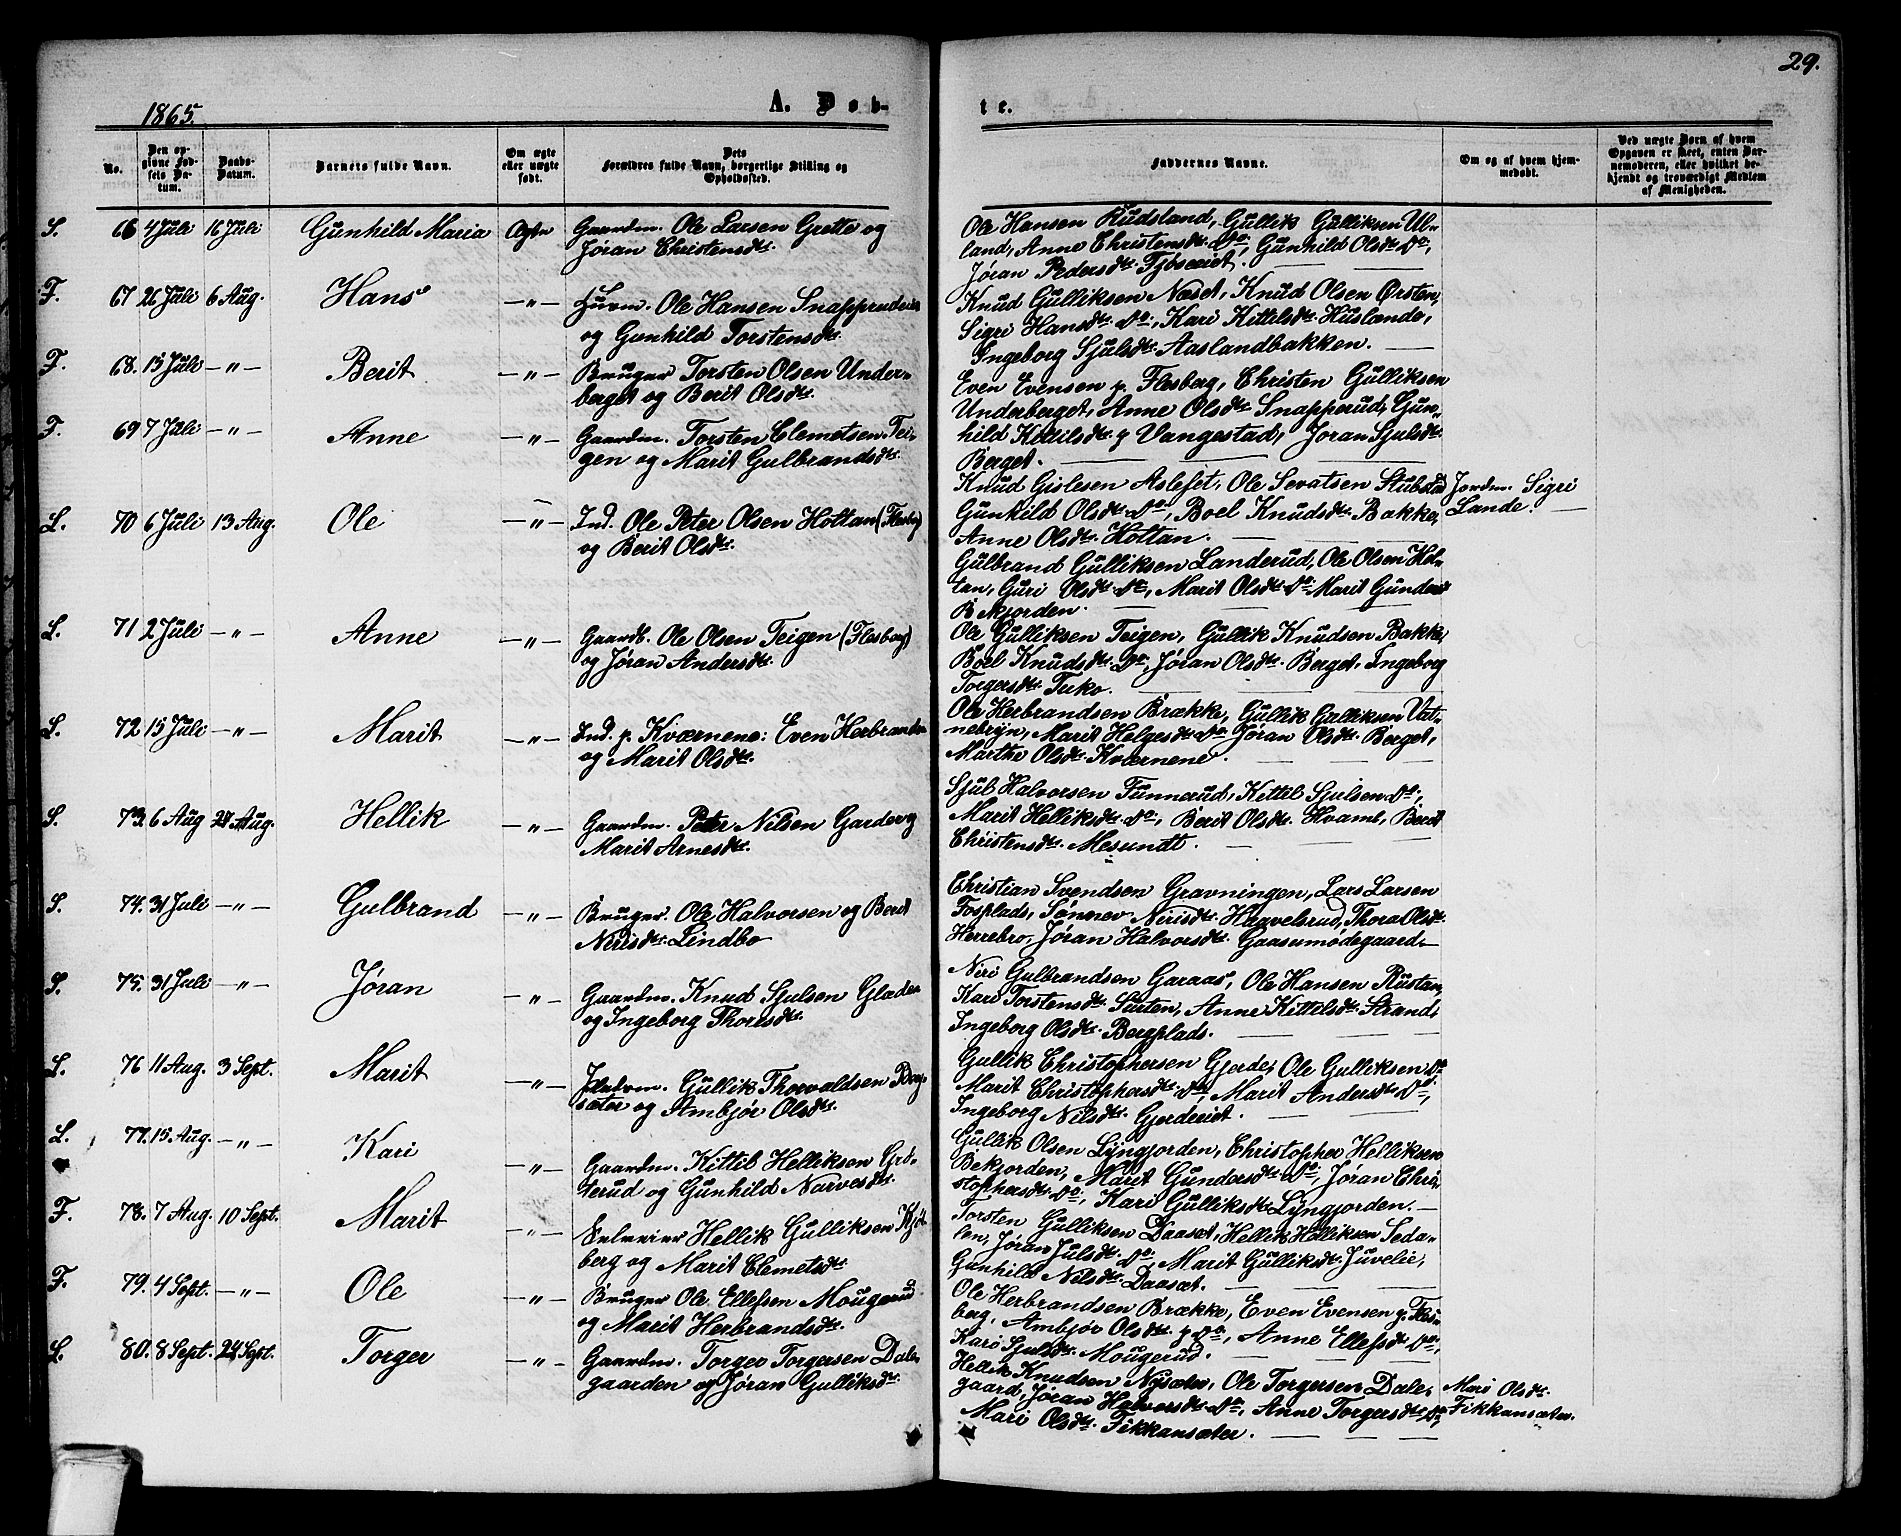 29.
1865.
A. Døb-
te.
No.
Den op-
givne Fød-
sels Da-
tum.
Daabs-
Datum.
Barnets fulde Navn.
Om ægte
eller uægte
født.
Dets
Forældres fulde Navn, borgerlige Stilling og
Opholdssted.
Faddernes Navne.
Om og af hvem hjem-
medøbt.
Ved uægte Børn af hvem
Opgaven er skeet, enten Bar-
nemoderen, eller hvilket be-
kjendt og troværdigt Medlem
af Menigheden.
S. 66 4 Juli 16 Juli Gunhild Maria Ægte Gaardm. Ole Larsen Grette og
Jøran Christensdtr.
Ole Hansen Rudsland, Gullik Gulliksen Ul-
land, Anne Christensdtr. Do, Gunhild Olsdtr. Do,
Jøran Pedersdtr.
F. 67 26 Juli 6 Aug. Hans — " — Huusm. Ole Hansen
og Gunhild Torstensdtr.
Knud Gulliksen Næset, Knud Olsen Ørsten,
Sigri Hansdtr. Do, Kari Kittilsdtr. Huslende,
Ingeborg Sjulsdtr. Aaslandbakken. —
F. 68. 15 Juli — " — Berit — " — Bruger Torsten Olsen Under-
berget og Berit Olsdtr.
Even Evensen p. Flesberg, Christen Gulliksen
Underberget, Anne Olsdtr. Snapperud, Gun-
hild Kittilsdtr. p Vangestad, Jøran Sjulsdtr.
Berget. —
F. 69 7 Juli — " — Anne — " — Gaardm. Torsten Clemetsen Tei-
gen og Marit Gulbrandsdtr.
L. 70 6 Juli 13 Aug. Ole — " — Ind. Ole Peter Olsen Holtan (Flesberg)
og Berit Olsdtr.
Knud Gislesen Aslefet, Ole Sevatsen Stubstad
Gunhild Olsdtr. Do, Boel Knudsdtr. Bakke,
Anne Olsdtr. Holtan. —
Jordm. Sigri
Lande. —
Gulbrand Gulliksen Landerud, Ole Olsen Hol-
tan, Guri Olsdtr. Do, Marit Olsdtr. Do Marit Gundersdtr
Bekjorden. —
L. 71 2 Juli — " — Anne — " — Gaardb. Ole Olsen Teigen (Flesberg)
og Jøran Andersdtr.
Ole Gulliksen Teigen, Gullik Knudsen Bakke,
Boel Knudsdtr. Do, Jøran Olsdtr. Berget, Ingeborg
Torgersdtr. Tuko. —
L. 72 15 Juli — " — Marit — " — Ind. p. Kværnene: Even Herbrandsen
og Marit Olsdtr.
Ole Herbrandsen Brække, Gullik Gulliksen Vat-
nebryn, Marit Helgesdtr. Do Jøran Olsdtr. Berget,
Marthe Olsdtr. Kværnene. —
S. 73. 6 Aug 24 Aug. Hellik — " — Gaardm. Peter Nilsen Garder og
Marit Arnesdtr.
Sjul Halvorsen Funnerud, Kittel Sjulsen Do,
Marit Helliksdtr. Do, Berit Olsdtr. Hvaml, Berit
Christensdtr. Mesundt. —
S. 74. 31 Juli — " — Gulbrand — " — Bruger. Ole Halvorsen og Berit
Nirisdtr. Lindbo
Christian Svendsen Gravningen, Lars Larsen
Fosplads, Sønnev Nirisdtr. Haavelsrud, Thora Olsdtr.
Herrebro, Jøran Halvorsdtr. Gaasumødegaard. —
S. 75. 31 Juli — " — Jøran — " — Gaardm. Knud Sjulsen Gladen
og Ingeborg Thoresdtr.
Niri Gulbrandsen Garaas, Ole Hansen Rusten,
Kari Torstensdtr. Surten, Anne Kittelsdtr. Strand,
Ingeborg Olsdtr. Bergplads.
L. 76 11 Aug. 3 Sept. Marit — " — Gullik Thorvaldsen
sæter og Ambjør Olsdtr.
Gullik Christophersen Gjerde, Ole Gulliksen Do
Marit Christophersdtr. Do, Marit Andersdtr. Do,
Ingeborg Nilsdtr. Gjerderiet. —
L. 77. 15 Aug. — " — Kari — " — Gaardm. Kittil Helliksen Grø-
terud og Gunhild Narvesdtr.
Gullik Olsen Lyngjorden, Christopher Helliksen
Bekjorden, Marit Gundersdtr. Do, Jøran Chri-
stophersdtr. Do, Kari Gulliksdtr. Lyngjorden. —
F. 78. 7 Aug. 10 Sept. Marit — " — Selveier Hellik Gulliksen
berg og Marit Clemetsdtr.
Torsten Gulliksen Daaset, Hellik Helliksen Seda-
len, Jøran Julsdtr. Do, Marit Gulliksdtr. Juvelie,
Gunhild Nilsdtr. Daaset. —
F. 79. 4 Sept. — " — Ole — " — Bruger Ole Ellefsen Mougerud
og Marit Herbrandsdtr.
Ole Herbrandsen Brække, Even Evensen p. Fles-
berg, Ambjør Olsdtr. p Do, Anne Ellefsdtr. Do,
Kari Sjulsdtr. Mougerud. —
L. 80. 8 Sept. 24 Sept. Torger — " — Gaardm. Torger Torgersen Dale-
gaarden og Jøran Gulliksdtr.
Hellik Knudsen Nysæter, Ole Torgersen Dale-
gaard, Jøran Halvorsdtr. Do, Anne Torgersdtr. Do,
Mari Olsdtr. Fikkansæter. —
Mari Olsdtr.
Fikkansæter.